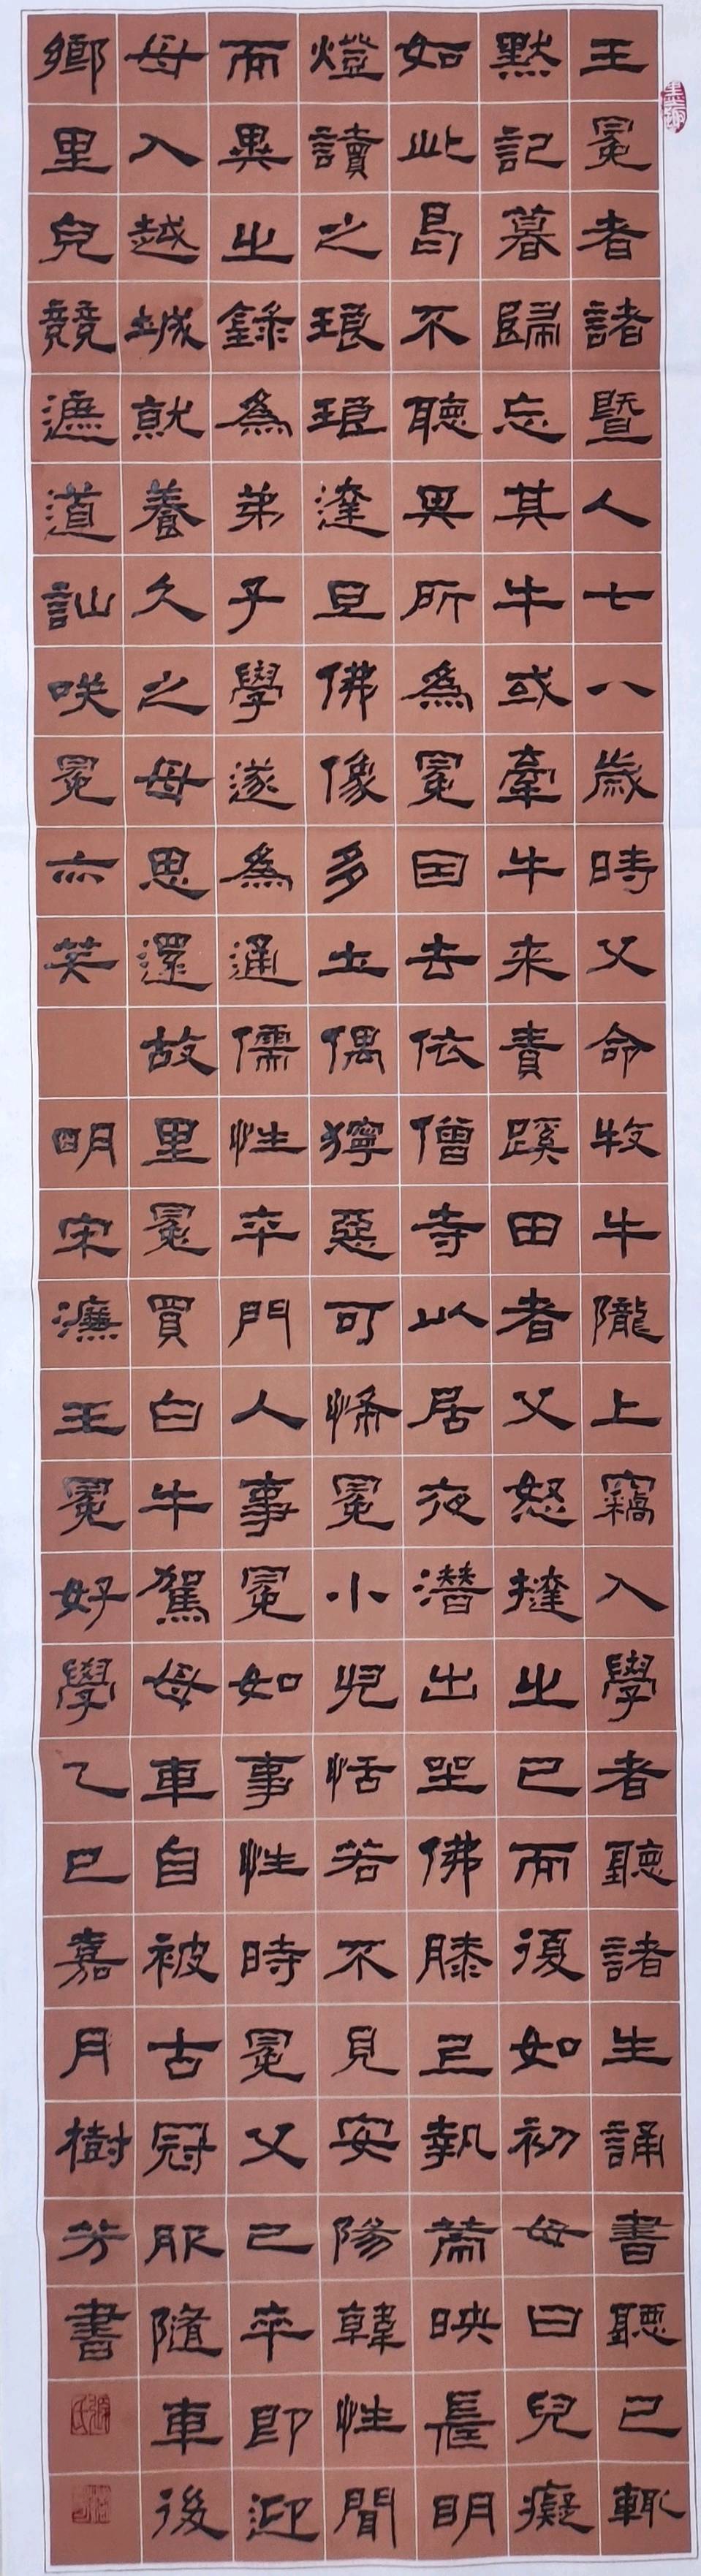 王冕者諸暨人七八歲時父命牧牛隴上竊入學者聽諸生誦書聽已輒
默記暮歸忘其牛或牽牛来責蹊田者父怒撻之已而復如初母曰兒癡
如此曷不聽其所為冕因去依僧寺以居夜潛出坐佛膝上執策映長明
燈讀之琅琅達旦佛像多土偶獰惡可怖冕小兒恬若不見安陽韓性聞
而異之錄為弟子學遂為通儒性卒門人事冕如事性時冕父已卒即迎
母入越城就養久之母思還故里冕買白牛駕母車自被古冠服隨車後
鄉里兒競遮道訕咲冕亦笑 明宋濂王冕好學乙巳嘉月樹芳書